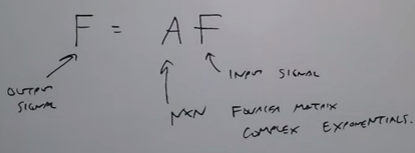 F = A F
INPUT SIGNAL
OUTPUT
SIGNAL
NXN FOURIER MATRIX
COMPLEX EXPONENTIALS.